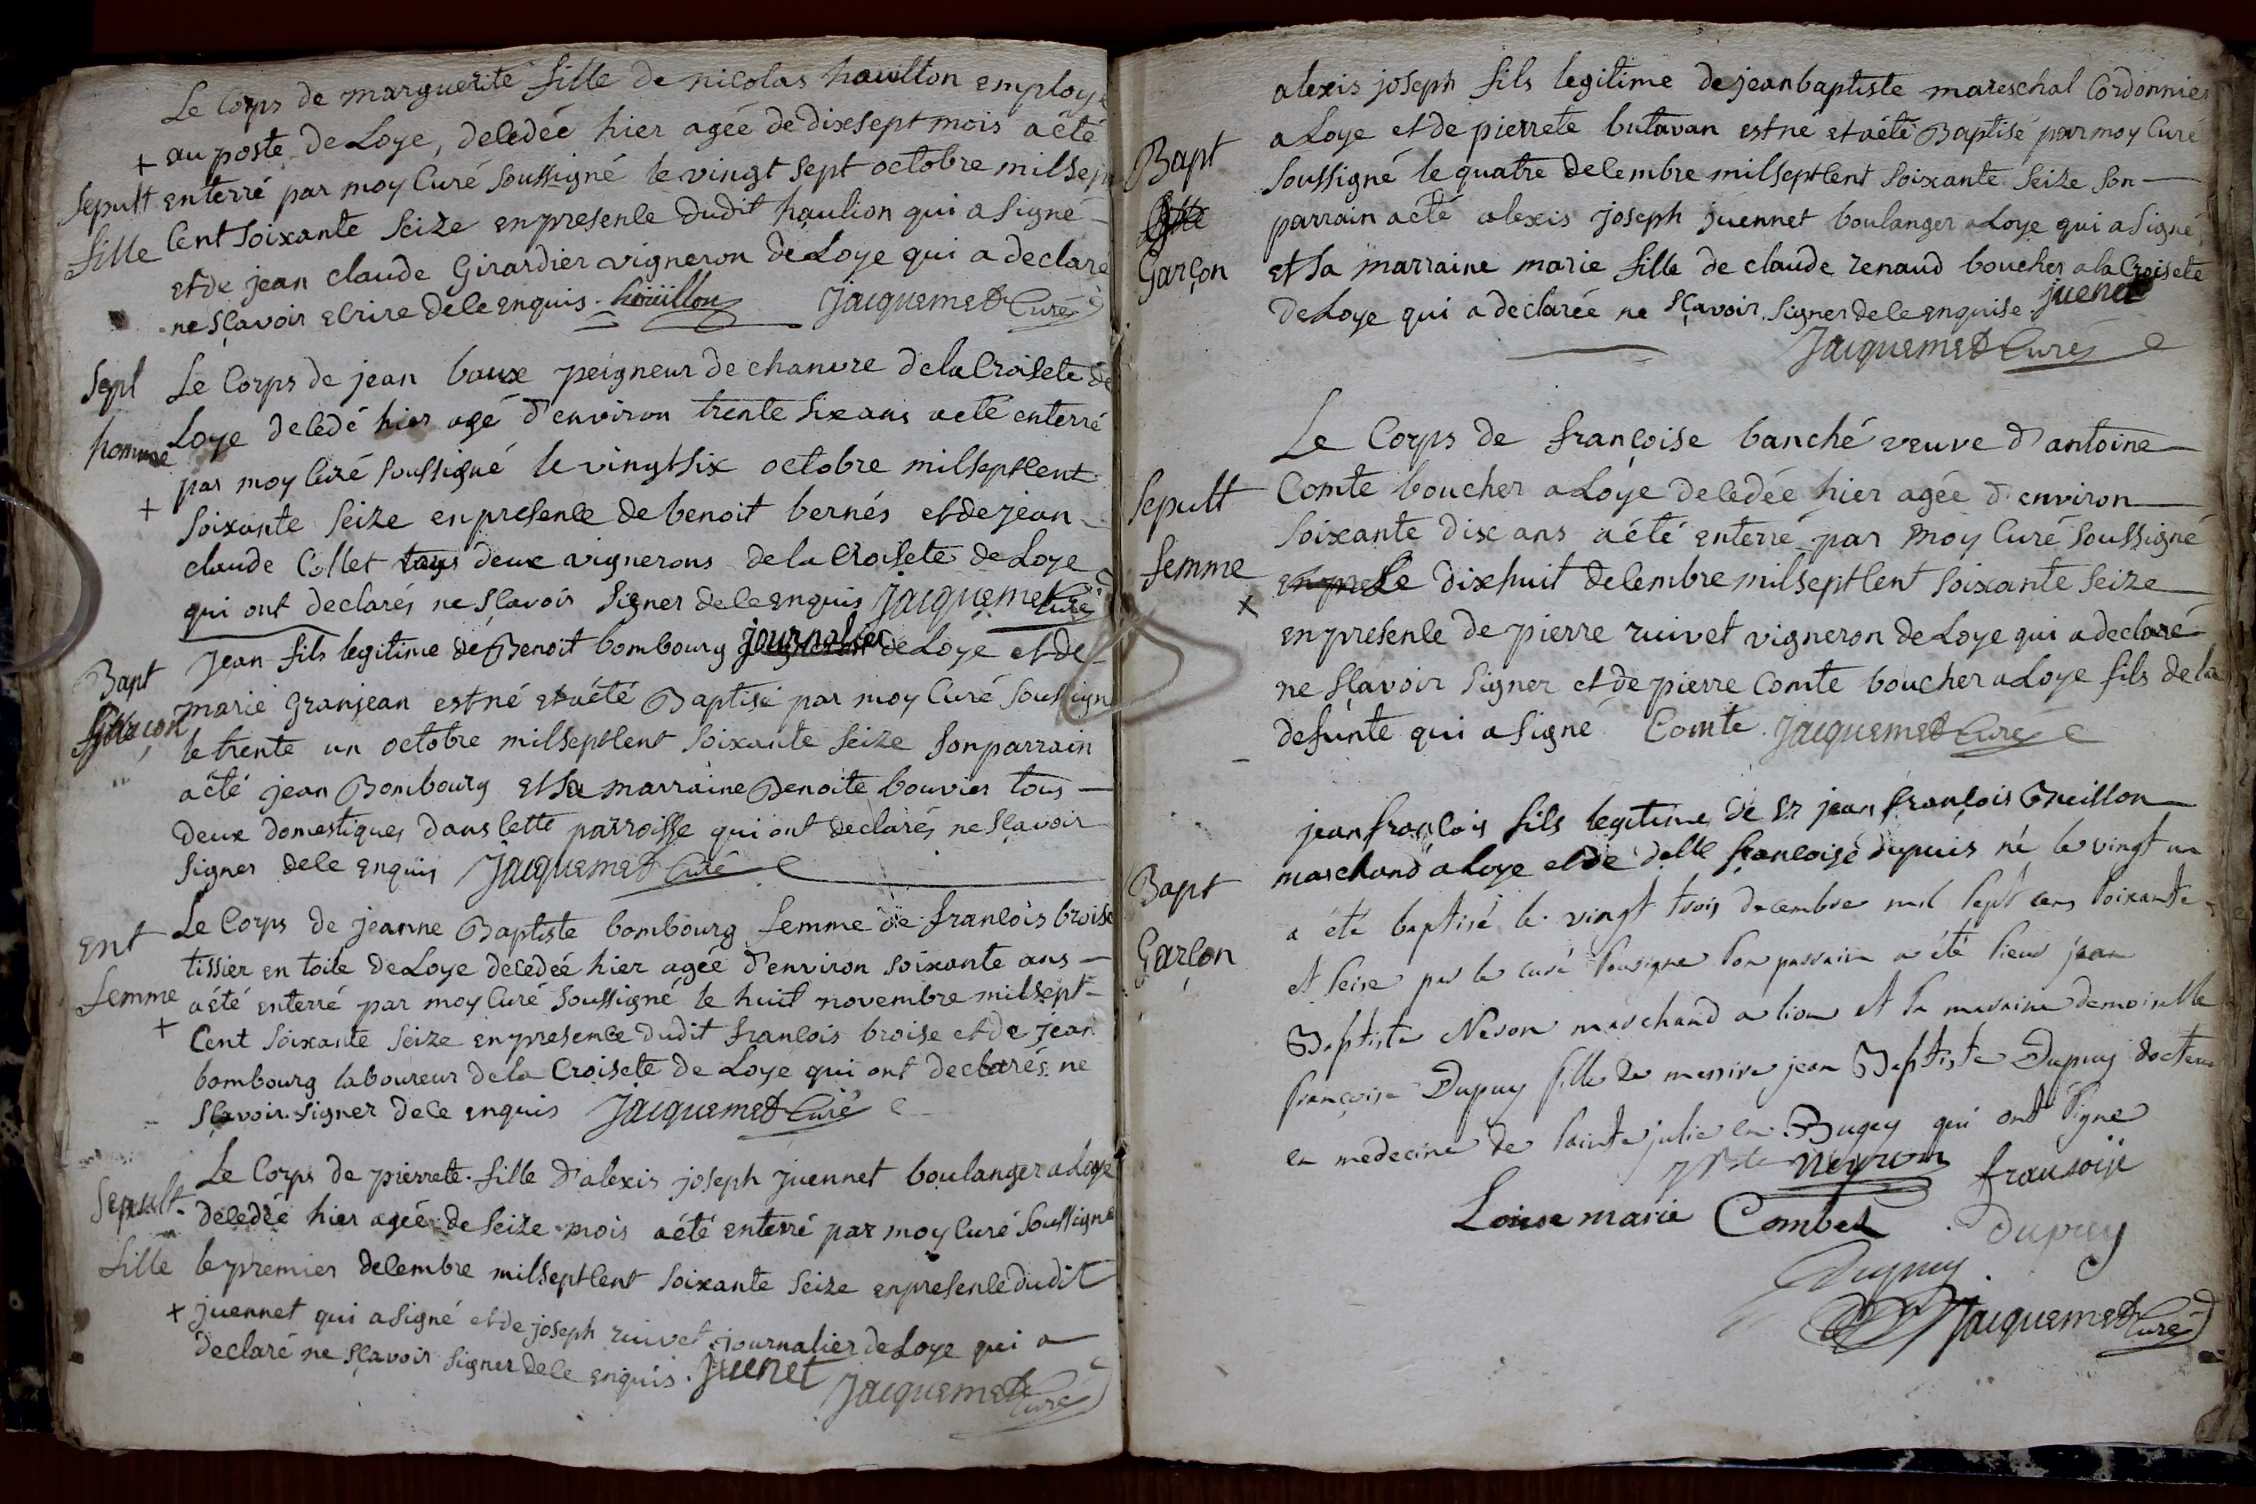 Le Corps de marguerite fille de nicolas hauillon employé
+ au poste de Loye, decedée hier agée de dixsept mois a été
Sepult enterré par moy Curé soussigné le vingt sept octobre milsept
fille Cent soixante seize en presence dudit haulion qui a signé
et de jean claude Girardier vigneron de Loye qui a declaré
ne sçavoir ecrire de ce enquis . hoüillon Jacquemet Curé
Sepl Le Corps de jean baux peigneur de chanvre de la Croisete de
homme Loye decedé hier agé d'environ trente six ans a eté enterré
par moy Curé soussigné le vingt six octobre milseptcent
+ soixante seize en presence de benoit bernés et de jean
claude Collet tous deux vignerons de la Croisete de Loye
qui ont declarés ne sçavoir signer de ce enquis Jacquemet Curé
Jean fils legitime de Benoit bombourg journalier de Loye et de
Bapt marie Granjean est né et a été Baptisé par moy Curé soussigné
Garçon le trente un octobre milseptcent soixante seize son parrain
a été jean Bombourg et sa marraine Benoite bouvier tous
deux domestiques dans cette parroisse qui ont declarés ne sçavoir
signer de ce enquis Jacquemet Curé
Ent Le Corps de jeanne Baptiste bombourg femme de françois broise
tissier en toile de Loye decedée hier agée d'environ soixante ans
femme a été enterré par moy Curé soussigné le huit novembre milsept
+ Cent soixante seize en presence dudit françois broise et de jean
bombourg laboureur de la Croisete de Loye qui ont declarés ne
sçavoir signer de ce enquis Jacquemet Curé
Le Corps de pierrete fille d'alexis joseph juennet boulanger a Loye
Sepult decedée hier agée de seize mois a été enterré par moy Curé soussigné
fille le premier decembre milseptcent soixante seize en presence dudit
+ juennet qui a signé et de joseph ruivet journalier de Loye qui a
declaré ne sçavoir signer de ce enquis . juenet
Jacquemet Curé
alexis joseph fils legitime de jean baptiste mareschal Cordonnier
Bapt a Loye et de pierrete butavan est né et a été Baptisé par moy Curé
soussigné le quatre decembre milseptcent soixante seize son
parrain a été alexis joseph juennet boulanger a Loye qui a signé,
Garçon et sa marraine marie fille de claude renaud boucher a la Croisete
de Loye qui a declarée ne sçavoir signer de ce enquise . juenet
Jacquemet Curé
Le Corps de françoise banché veuve d'antoine
Sepult Comte boucher a Loye decedée hier agée d'environ
soixante dix ans a été enterré par moy Curé soussigné
femme Le dixhuit decembre milseptcent soixante seize
+ en presence de pierre ruivet vigneron de Loye qui a declaré
ne sçavoir signer et de pierre Comte boucher a Loye fils de la
defunte qui a signé Comte . Jacquemet Curé
jean françois fils legitime de Sr jean françois Breillon
marchand a Loye et de delle françoise dupuis né le vingt un
Bapt a été baptisé le vingt trois decembre mil sept cens soixante
Garçon et seise par le curé sousigne son parrain a été sieur jean
Baptiste Neron marchand a lion et sa maraine demoiselle
françoise Dupuy fille de messire jean Baptiste Dupuy docteur
en medecine de sainte julie en Bugey qui ont signe
neyron fransoise
Louise marie Combet dupuy
Dupuy
Jacquemet Curé